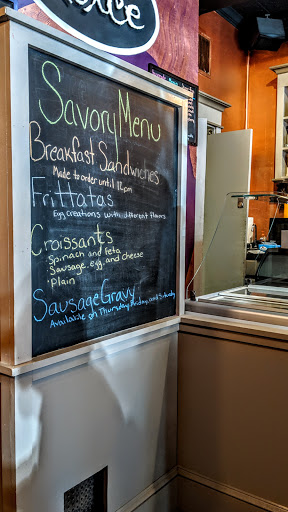 Savory Menu
Breakfast Sandwiches
Made to order until 12pm
Frittatas
Egg creations with different flavors
Croissants
Spinach and feta
Sausage, egg, and cheese
Plain
Sausage Gravy
Available on Thursday, Friday, and Saturday